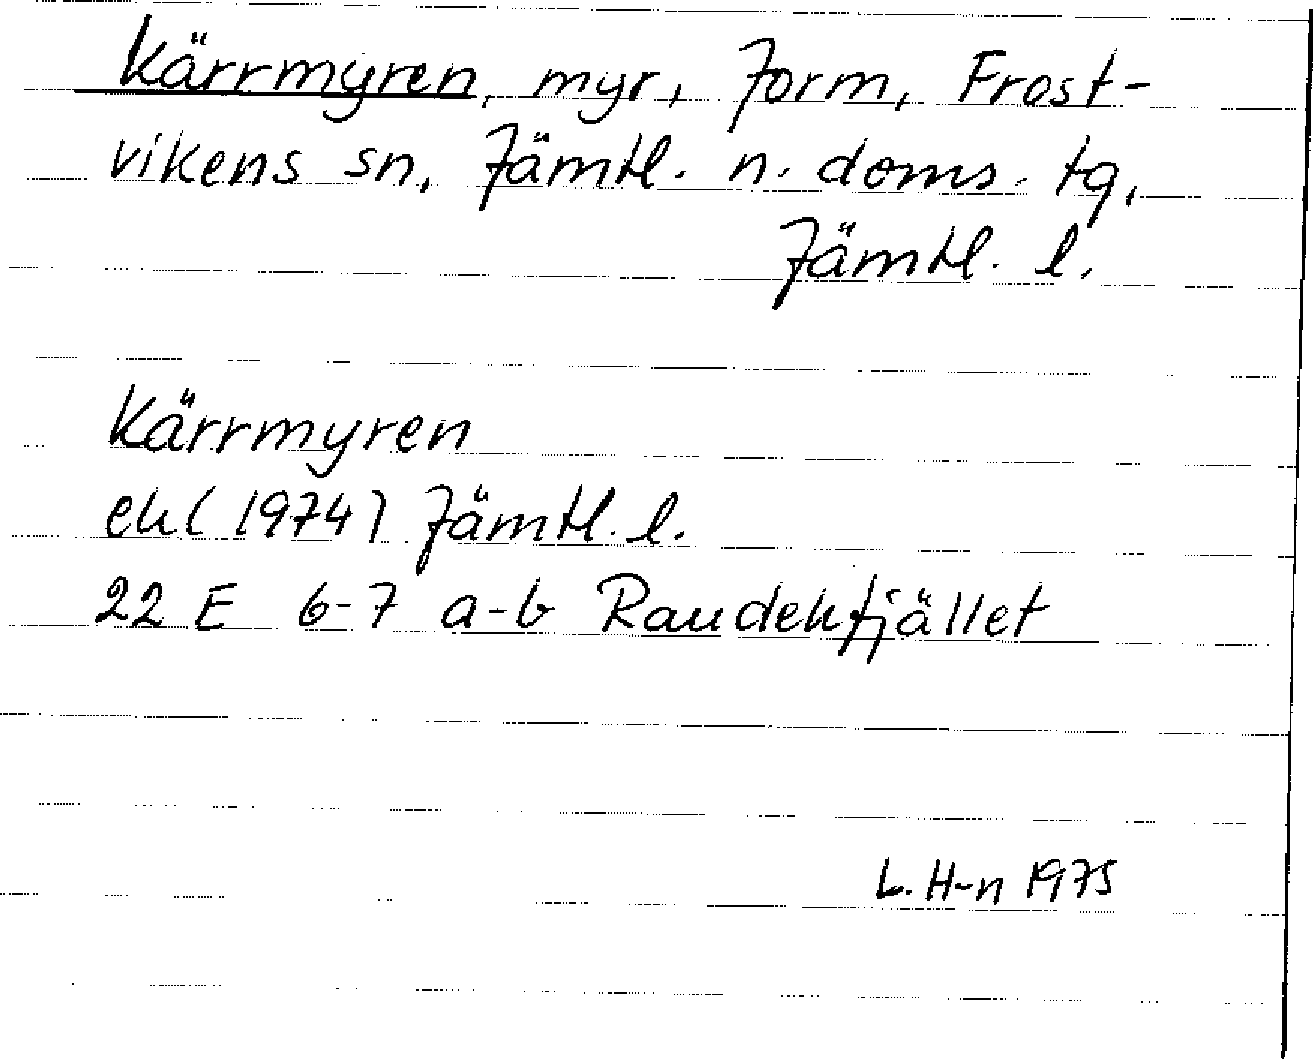 Kärrmyren, myr, Jorm, Frost-
vikens sn, Jämtl. n. doms. tg,
Jämtl. l.
Kärrmyren
ek (1974) Jämtl. l.
22 E 6-7 a-b Raudekfjället
L. H-n 1975